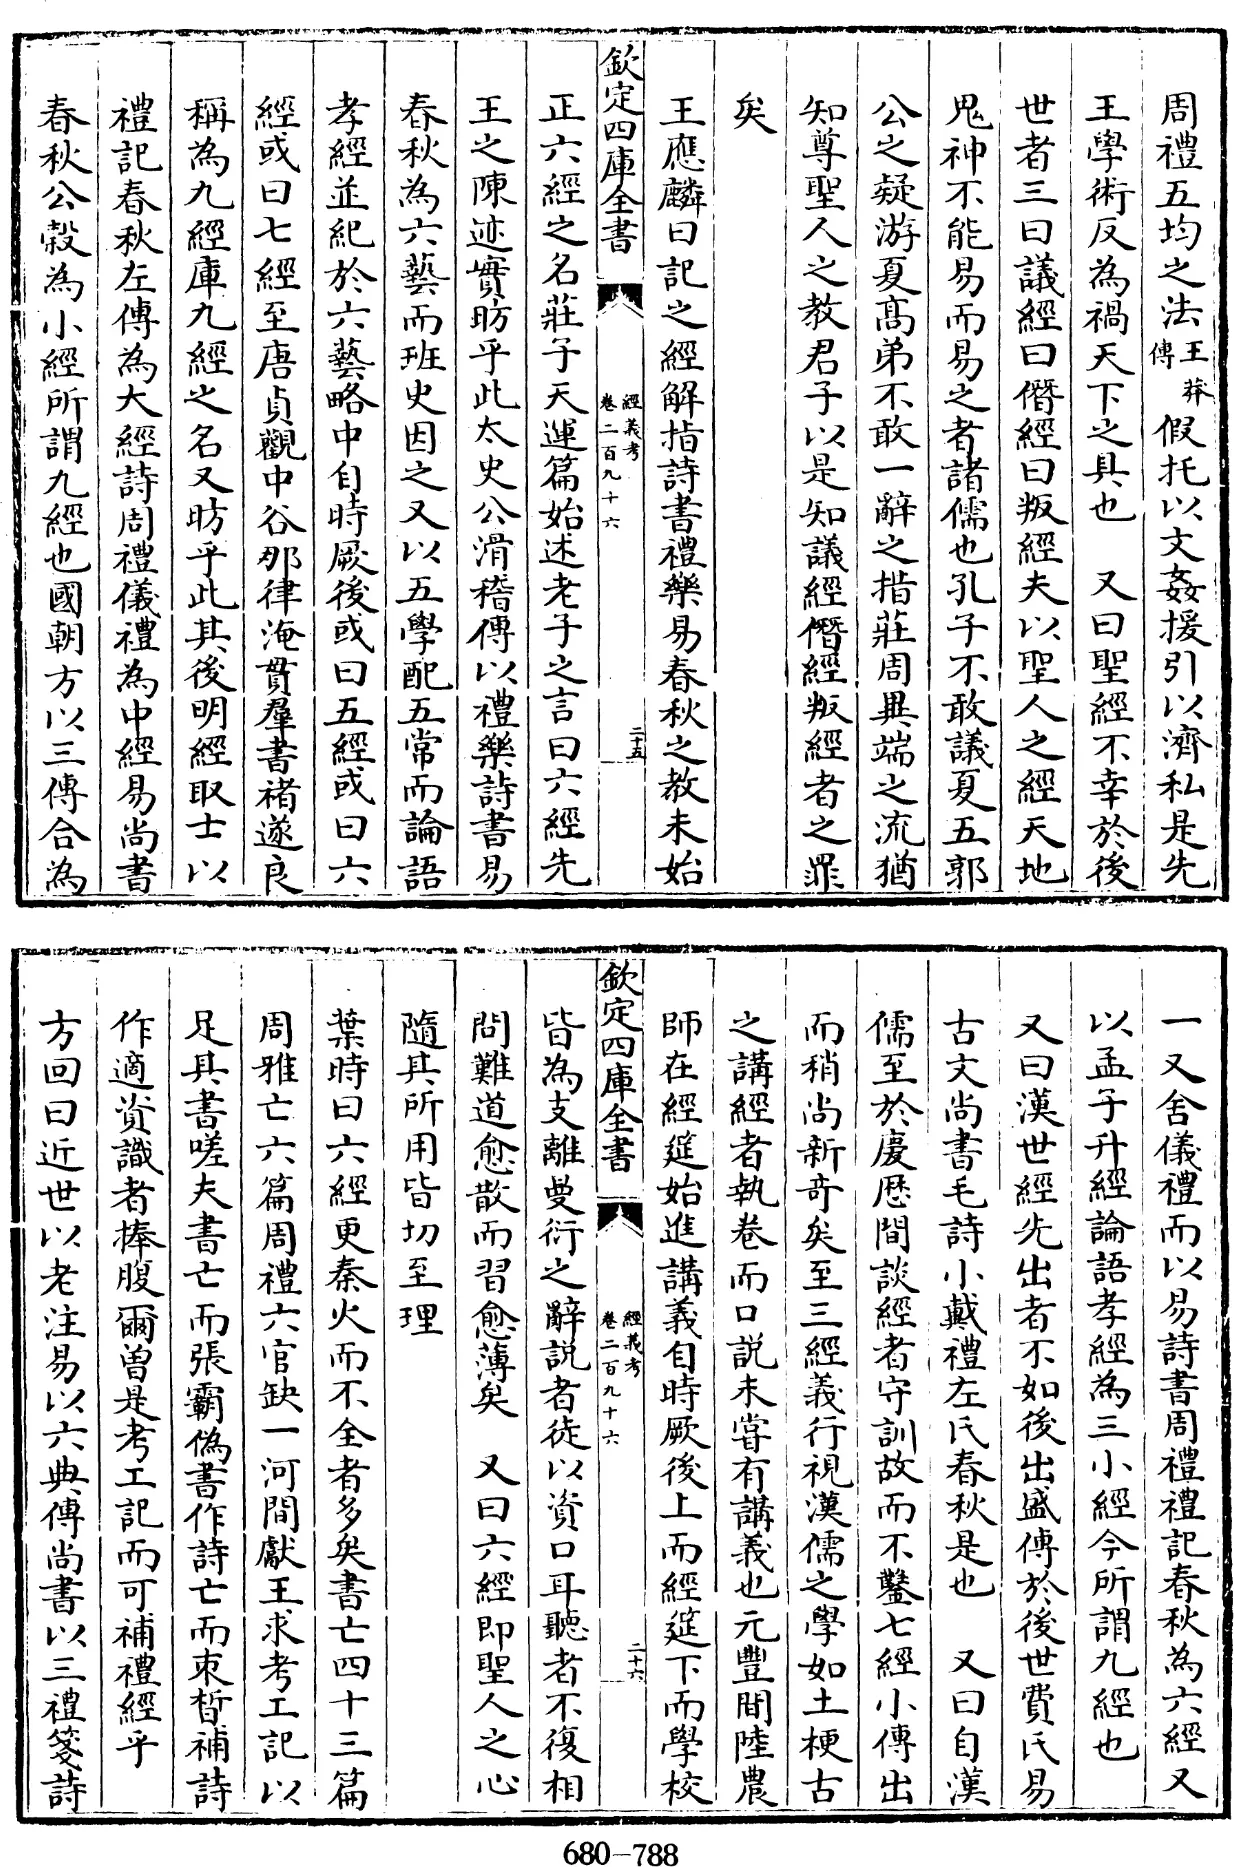 周禮五均之法王莽傳假托以文姦援引以濟私是先
王學術反為禍天下之具也　又曰聖經不幸於後
世者三曰議經曰僭經曰叛經夫以聖人之經天地
鬼神不能易而易之者諸儒也孔子不敢議夏五郭
公之疑游夏高弟不敢一辭之措莊周異端之流猶
知尊聖人之教君子以是知議經僭經叛經者之罪
矣
王應麟曰記之經解指詩書禮樂易春秋之教未始
欽定四庫全書
經義考
卷二百九十六
二十五
正六經之名莊子天運篇始述老子之言曰六經先
王之陳迹實昉乎此太史公滑稽傳以禮樂詩書易
春秋為六藝而班史因之又以五學配五常而論語
孝經並紀於六藝略中自時厥後或曰五經或曰六
經或曰七經至唐貞觀中谷那律淹貫羣書褚遂良
稱為九經庫九經之名又昉乎此其後明經取士以
禮記春秋左傳為大經詩周禮儀禮為中經易尚書
春秋公穀為小經所謂九經也國朝方以三傳合為
一又舍儀禮而以易詩書周禮禮記春秋為六經又
以孟子升經論語孝經為三小經今所謂九經也
又曰漢世經先出者不如後出盛傳於後世費氏易
古文尚書毛詩小戴禮左氏春秋是也　又曰自漢
儒至於慶歴間談經者守訓故而不鑿七經小傳出
而稍尚新奇矣至三經義行視漢儒之學如土梗古
之講經者執卷而口説未嘗有講義也元豐間陸農
師在經筵始進講義自時厥後上而經筵下而學校
欽定四庫全書
經義考
卷二百九十六
二十六
皆為支離曼衍之辭説者徒以資口耳聽者不復相
問難道愈散而習愈薄矣　又曰六經即聖人之心
隨其所用皆切至理
葉時曰六經更秦火而不全者多矣書亡四十三篇
周雅亡六篇周禮六官缺一河間獻王求考工記以
足其書嗟夫書亡而張霸偽書作詩亡而束晳補詩
作適資識者捧腹爾曽是考工記而可補禮經乎
方回曰近世以老注易以六典傳尚書以三禮箋詩
680-788